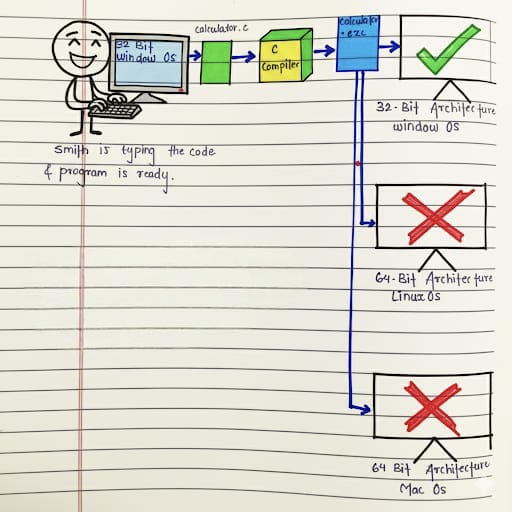 calculator.c
32 Bit
window Os
C
Compiler
calculator
.exc
32-Bit Architecture
window Os
Smith is typing the code
& program is ready.
64-Bit Architecture
Linux Os
64 Bit Architecture
Mac Os